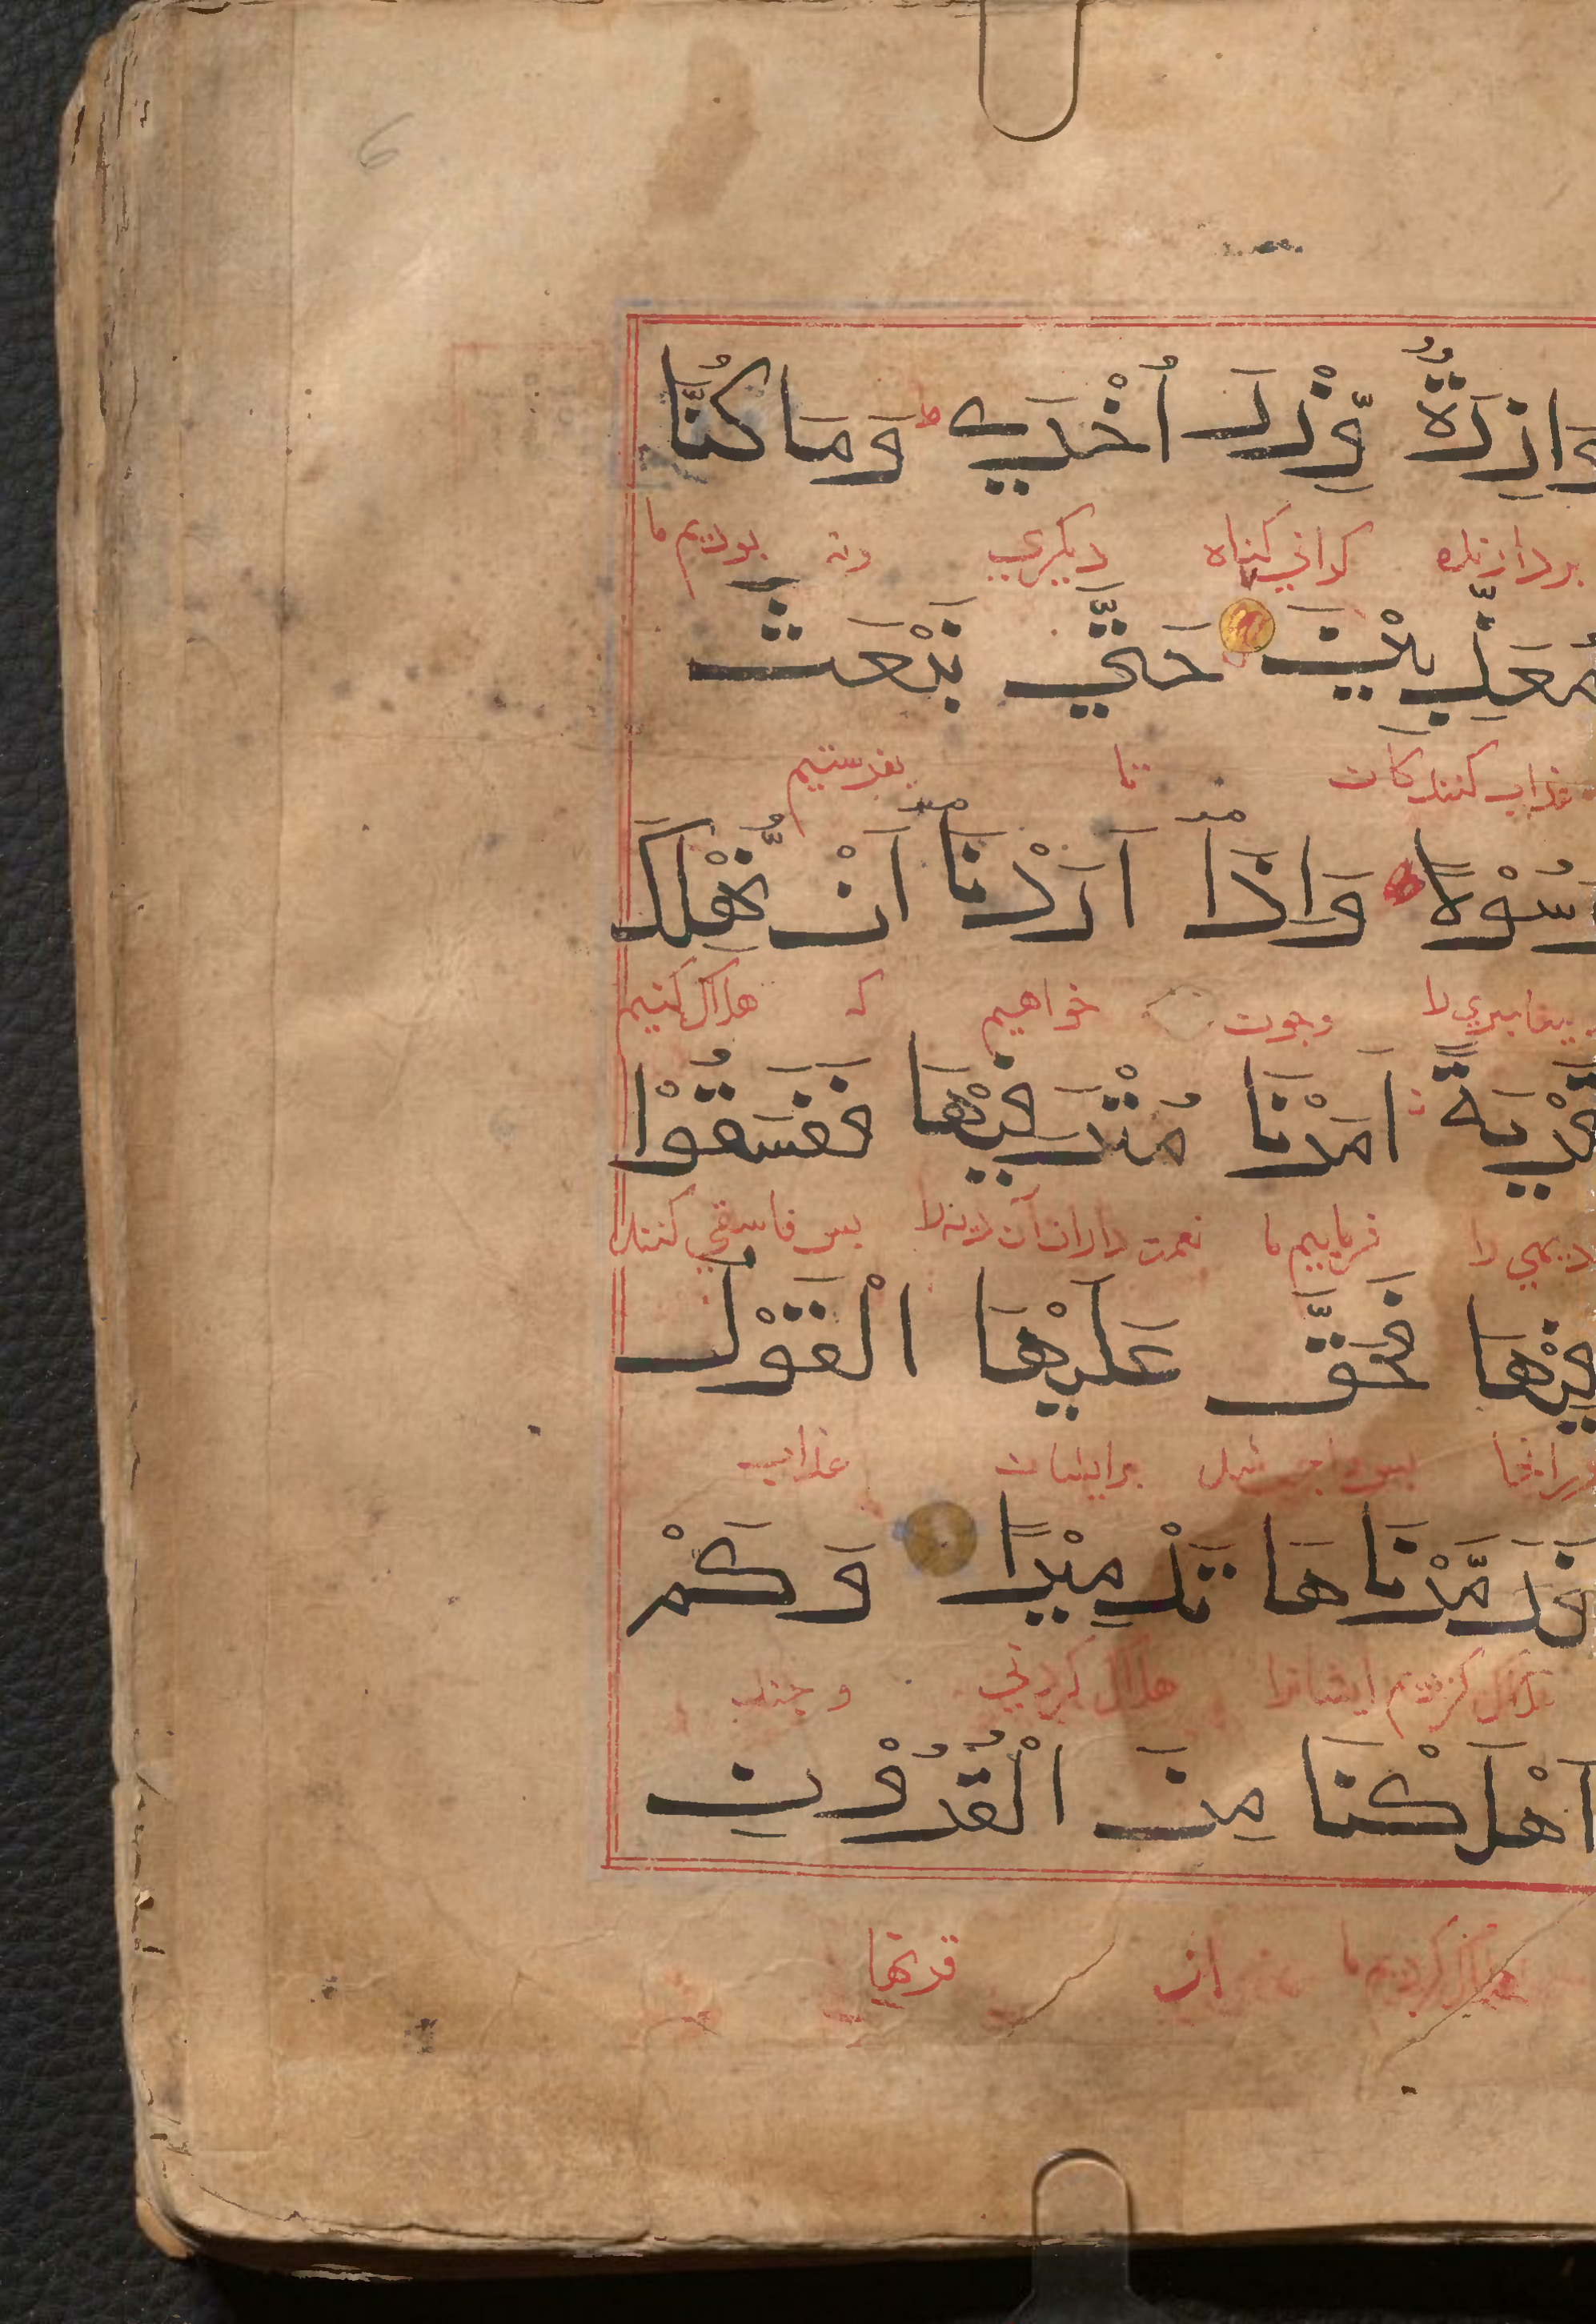 6
وَازِرَةٌ وِّزْرَ أُخْرٰي ط وَمَا كُنَّا
بردارنده كراني كناه ديكري ونه بوديم ما
مُعَذِّبِيْنَ حَتّٰي نَبْعَثَ
عذاب كنندكان تا بفرستيم
رَسُوْلًا وَاِذَآ اَرَدْنَآ اَنْ نُّهْلِكَ
پيغامبري را وچون خواهيم كه هلاك كنيم
قَرْيَةً اَمَرْنَا مُتْرَفِيْهَا فَفَسَقُوْا
ديهي را فرماييم ما نعمت داران آن ديه را پس فاسقي كنند
فِيْهَا فَحَقَّ عَلَيْهَا الْقَوْلُ
پس واجب شد برايشان عذاب
فَدَمَّرْنَاهَا تَدْمِيْرًا وَكَمْ
هلاك كرديم ايشانرا هلاك كردني و چند
اَهْلَكْنَا مِنَ الْقُرُوْنِ
هلاك كرديم ما از قرنها